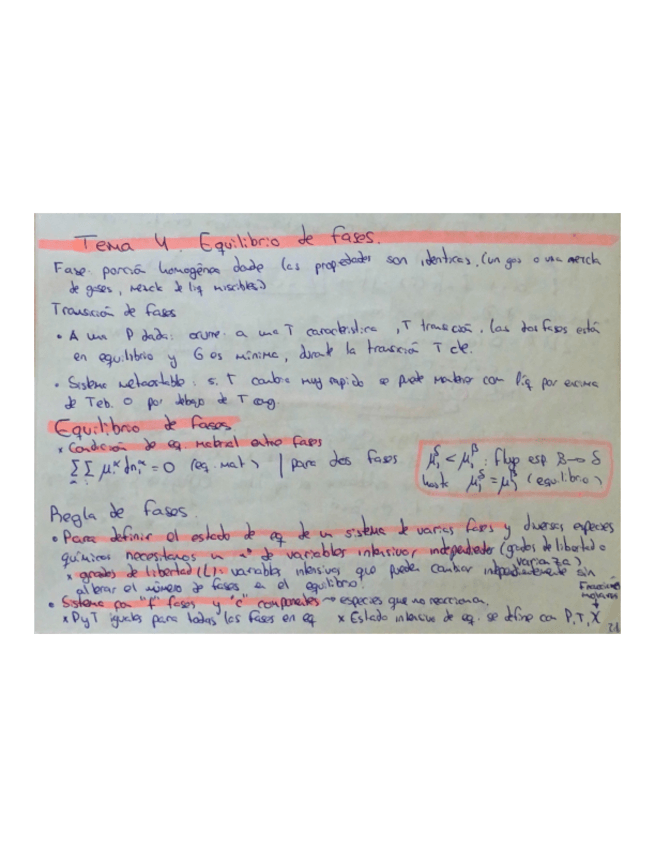 Tema 4 Equilibrio de fases.
Fase: porción homogénea donde las propiedades son identicas. (un gas o una mezcla
de gases, mezcla de liq miscibles)
Transición de fases
• A una P dada: ocurre: a una T característica, T transición. Las dos fases están
en equilibrio y G es mínima, durante la transición T cte.
• Sistema metaestable: si T cambia muy rapido se puede mantener com líq por encima
de Teb. O por debajo de T cong.
Equilibrio de fases
x Condición de eq. material entre fases
∑∑ μᵢᵅ dnᵢᵅ = 0 (eq. mat) | para dos fases
μᵢᵟ < μᵢᵝ : flujo esp β → δ
hasta μᵢᵟ = μᵢᵝ (equilibrio)
Regla de fases.
• Para definir el estado de eq de un sistema de varias fases y diversas especies
químicas necesitamos un nº de variables intensivas independientes (grados de libertad o
varianza)
x grados de libertad (L): variables intensivas que pueden cambiar independientemente sin
alterar el número de fases en el equilibrio.
• Sistema con "f" fases y "c" componentes → especies que no reaccionan.
Fracciones
molares
x P y T iguales para todas las fases en eq x Estado intensivo de eq. se define con P, T, X
21